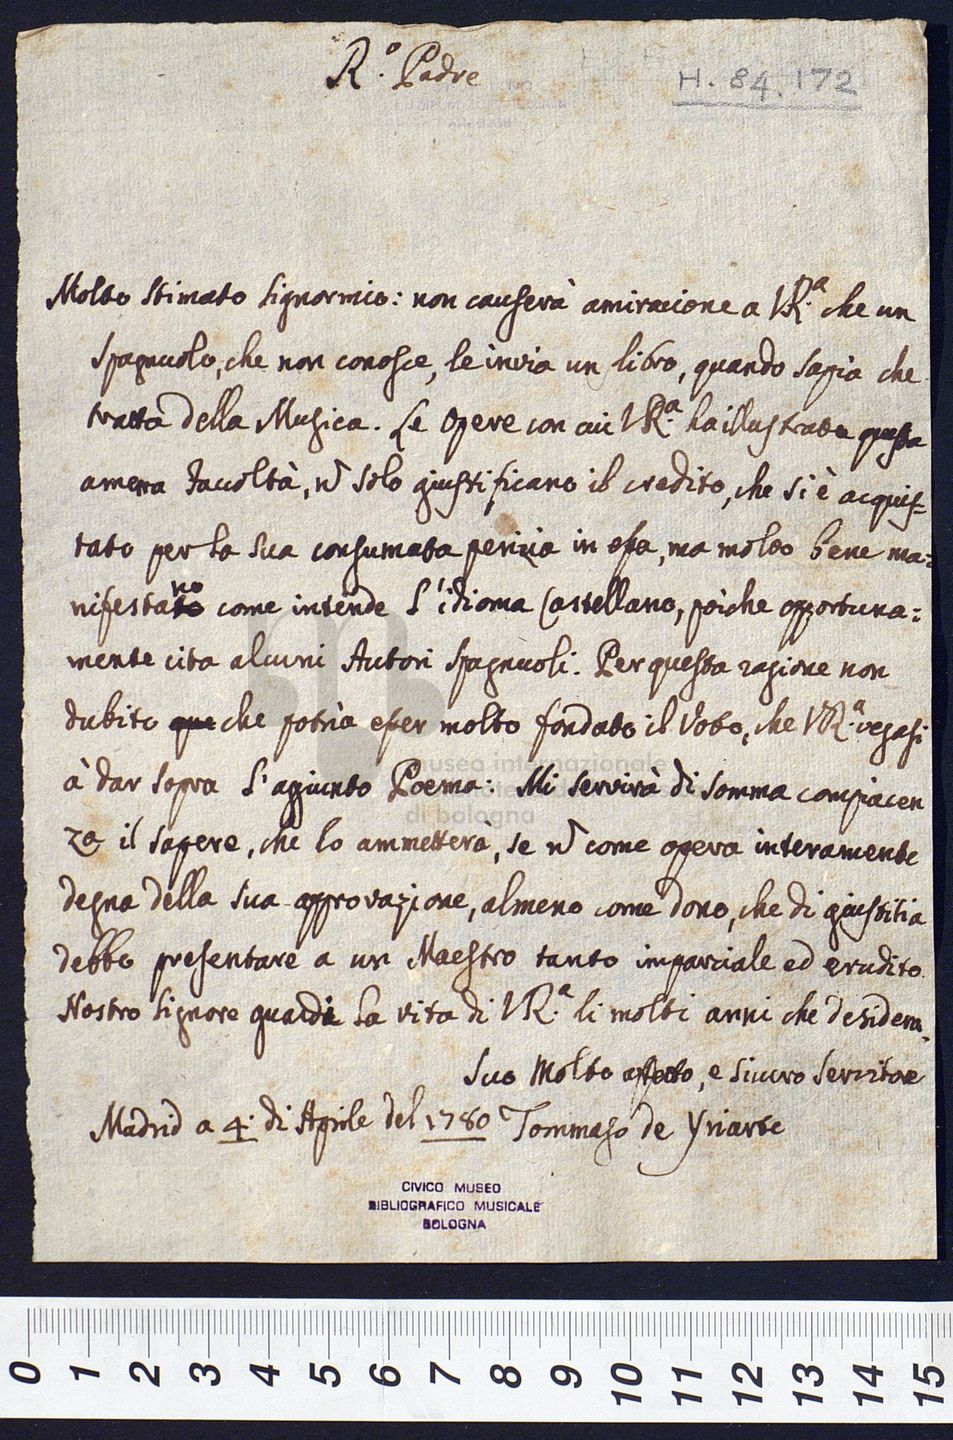 R.º Padre
H. 84.172
Molto stimato Signormio: non causerà amiracione a VR.ª che un
Spagnuolo, che non conosce, le invia un libro, quando sapia che
tratta della Musica. Le Opere con cui VR.ª ha illustrato questa
amena Facoltà, nō solo giustificano il credito, che si è acquis=
tato per la sua consumata perizia in essa, ma molto bene ma=
nifestano come intende l'idioma Castellano, poiche opportuna=
mente cita alcuni Autori Spagnuoli. Per questa ragione non
dubito que che potrìa esser molto fondato il Voto, che VR.ª vegasi
à dar sopra l'agiunto Poema: Mi servirà di somma compiacen
za il sapere, che lo ammetterà, se nō come opera interamente
degna della sua approvazione, almeno come dono, che di giustitia
debbo presentare a un Maestro tanto imparciale ed erudito.
Nostro Signore guardi la vita di VR.ª li molti anni che desidera
Suo Molto affetto, e sicuro servitore
Madrid a 4. di Aprile del 1780 Tommaso de Yriarte
museo internazionale
di bologna
CIVICO MUSEO
BIBLIOGRAFICO MUSICALE
BOLOGNA
0 1 2 3 4 5 6 7 8 9 10 11 12 13 14 15